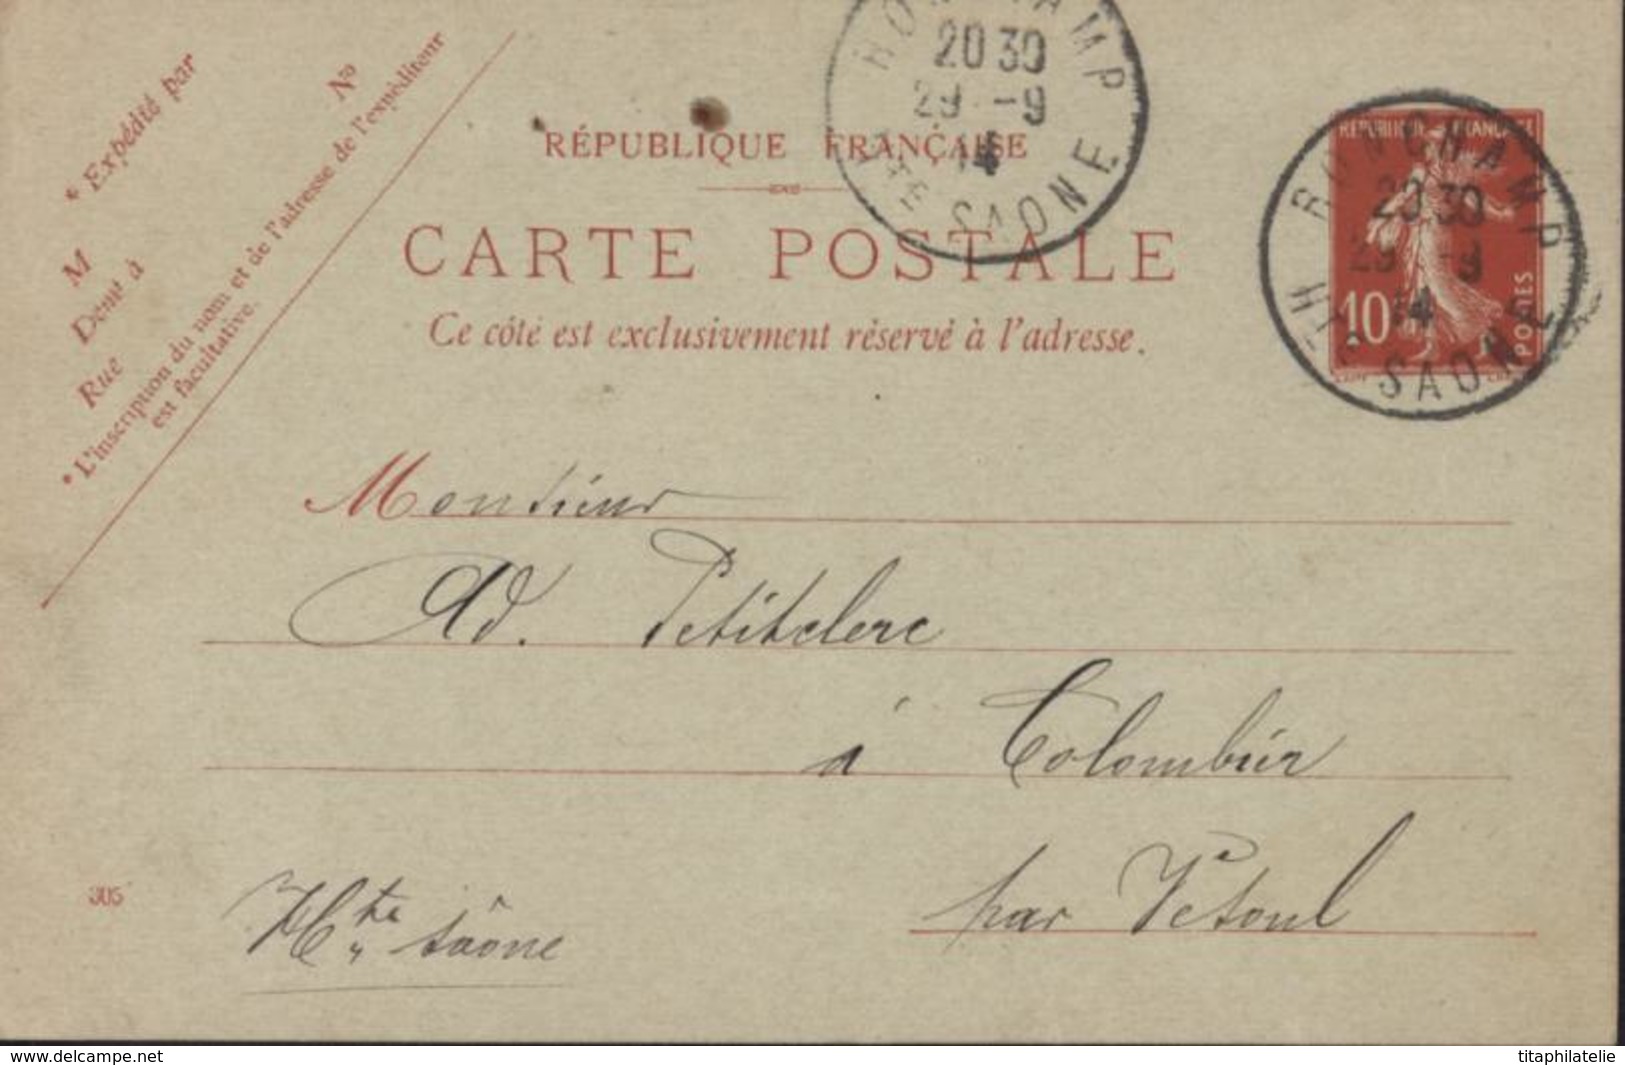 * Expédité par
Nº
M
Demt à
Rue
* L'inscription du nom et de l'adresse de l'expéditeur
est facultative.
RONCHAMP
20 30
29 -9
14
HTE SAONE
RÉPUBLIQUE FRANÇAISE
CARTE POSTALE
Ce côté est exclusivement réservé à l'adresse.
RÉPUBLIQUE FRANÇAISE
10
POSTES
RONCHAMP
20 30
29 -9
14
HTE SAONE
Monsieur
Ad. Petitclerc
à Colombier
par Vesoul
Hte Saône
305
www.delcampe.net
titaphilatelie